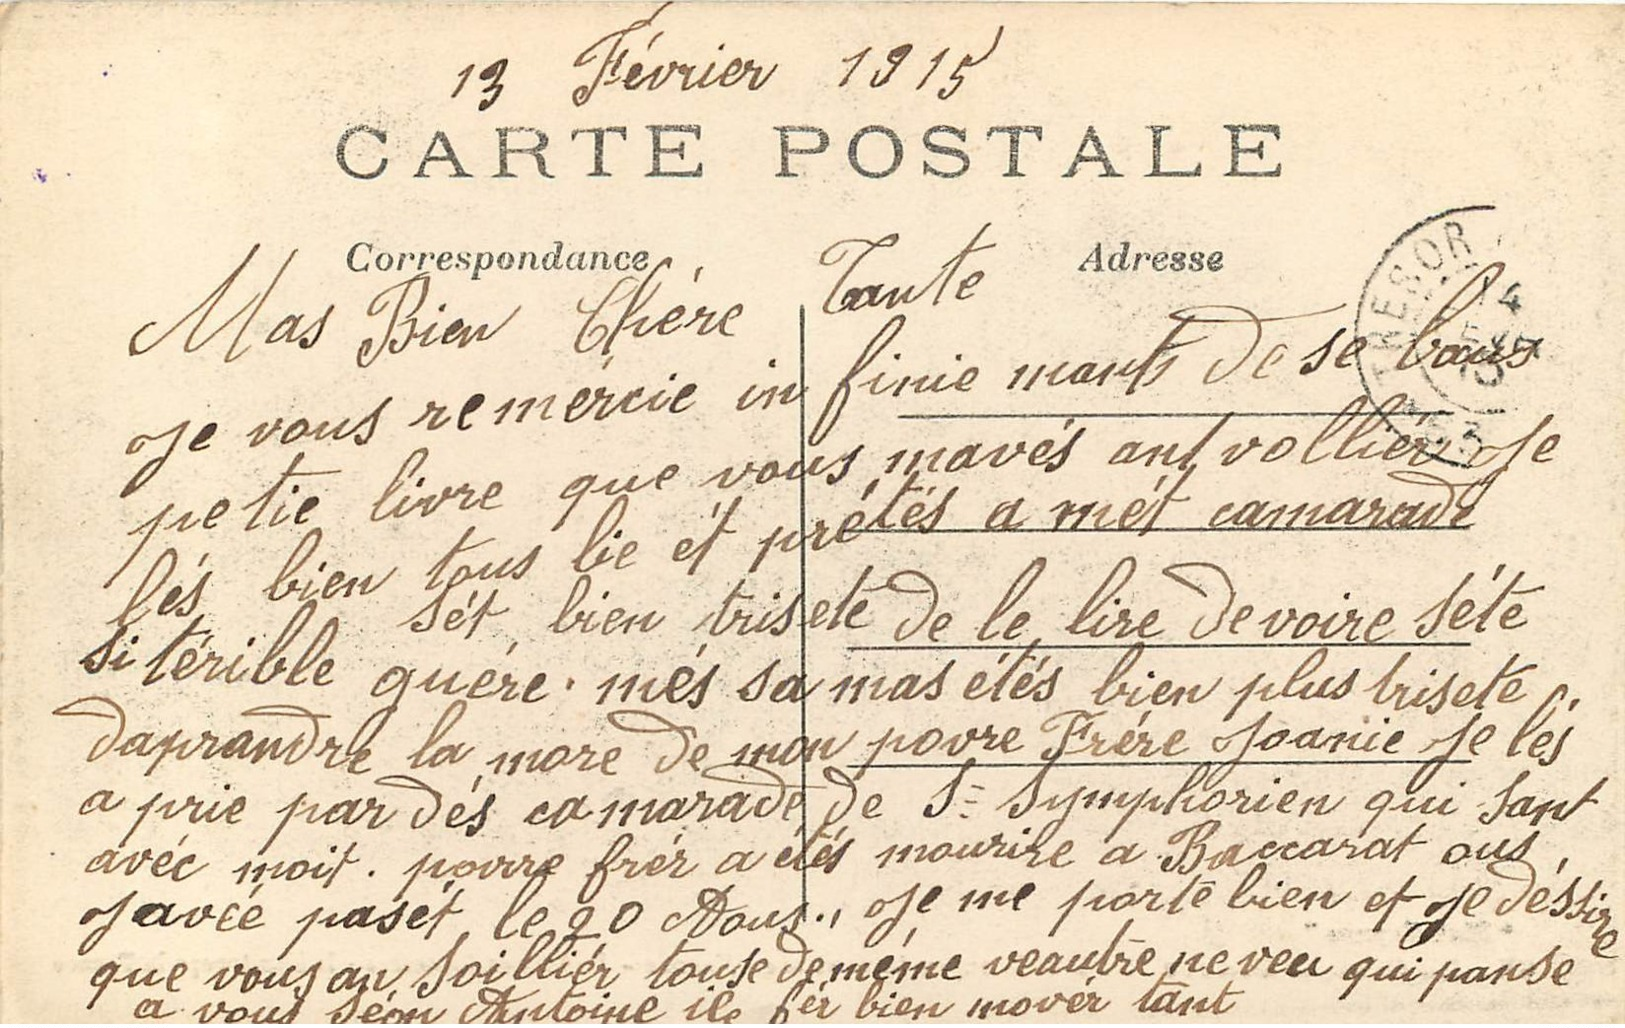 13 Février 1915
CARTE POSTALE
Correspondance Adresse
Mas Bien Chére Tante
Je vous remércie in finie mants de se baus
petie livre que vous mavés anvolliér Je
lés bien tous lie ét prétés a mét camarade
sét bien trisete de le lire de voire séte
si térible guére. més sa mas étés bien plus trisete
daprandre la more de mon povre Frére Joanie Je lés
a prie par dés camarade de St Symphorien qui sant
avéc moit. povre frér a étés mourire a Baccarat ous
Javée pasét le 20 Aous., Je me porte bien et Je déssire
que vous an soilliér touse de méme veautre neveu qui panse
a vous séon Antoine ile fér bien movér tant
TRESOR